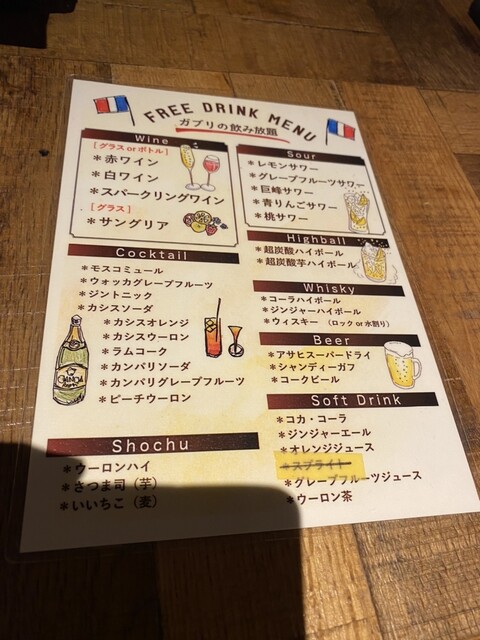 FREE DRINK MENU
ガブリの飲み放題
Wine
[グラス or ボトル]
＊赤ワイン
＊白ワイン
＊スパークリングワイン
[グラス]
＊サングリア
Cocktail
＊モスコミュール
＊ウォッカグレープフルーツ
＊ジントニック
＊カシスソーダ
＊カシスオレンジ
＊カシスウーロン
＊ラムコーク
＊カンパリソーダ
＊カンパリグレープフルーツ
＊ピーチウーロン
Shochu
＊ウーロンハイ
＊さつま司（芋）
＊いいちこ（麦）
Sour
＊レモンサワー
＊グレープフルーツサワー
＊巨峰サワー
＊青りんごサワー
＊桃サワー
Highball
＊超炭酸ハイボール
＊超炭酸芋ハイボール
Whisky
＊コーラハイボール
＊ジンジャーハイボール
＊ウィスキー（ロック or 水割り）
Beer
＊アサヒスーパードライ
＊シャンディーガフ
＊コークビール
Soft Drink
＊コカ・コーラ
＊ジンジャーエール
＊オレンジジュース
＊スプライト
＊グレープフルーツジュース
＊ウーロン茶